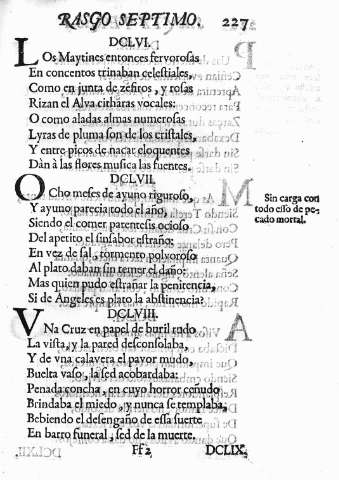 RASGO SEPTIMO. 227
DCLVI.
LOs Maytines entonces fervorosas
En concentos trinaban celestiales,
Como en junta de zefiros, y rosas
Rizan el Alva citharas vocales:
O como aladas almas numerosas
Lyras de pluma son de los cristales,
Y entre picos de nacar eloquentes
Dàn à las flores musica las fuentes.
DCLVII.
OCho meses de ayuno riguroso,
Y ayuno parecia todo el año,
Siendo el comer parentesis ocioso
Del apetito el sinsabor estraño:
En vez de sal, tormento polvoroso
Al plato daban sin temer el daño:
Mas quien pudo estrañar la penitencia,
Si de Angeles es plato la abstinencia?
Sin carga con
todo esso de pe-
cado mortal.
DCLVIII.
VNa Cruz en papel de buril rudo
La vista, y la pared desconsolaba,
Y de vna calavera el pavor mudo,
Buelta vaso, la sed acobardaba:
Penada concha, en cuyo horror ceñudo
Brindaba el miedo, y nunca se templaba,
Bebiendo el desengaño de essa suerte
En barro funeral, sed de la muerte.
Ff2 DCLIX.